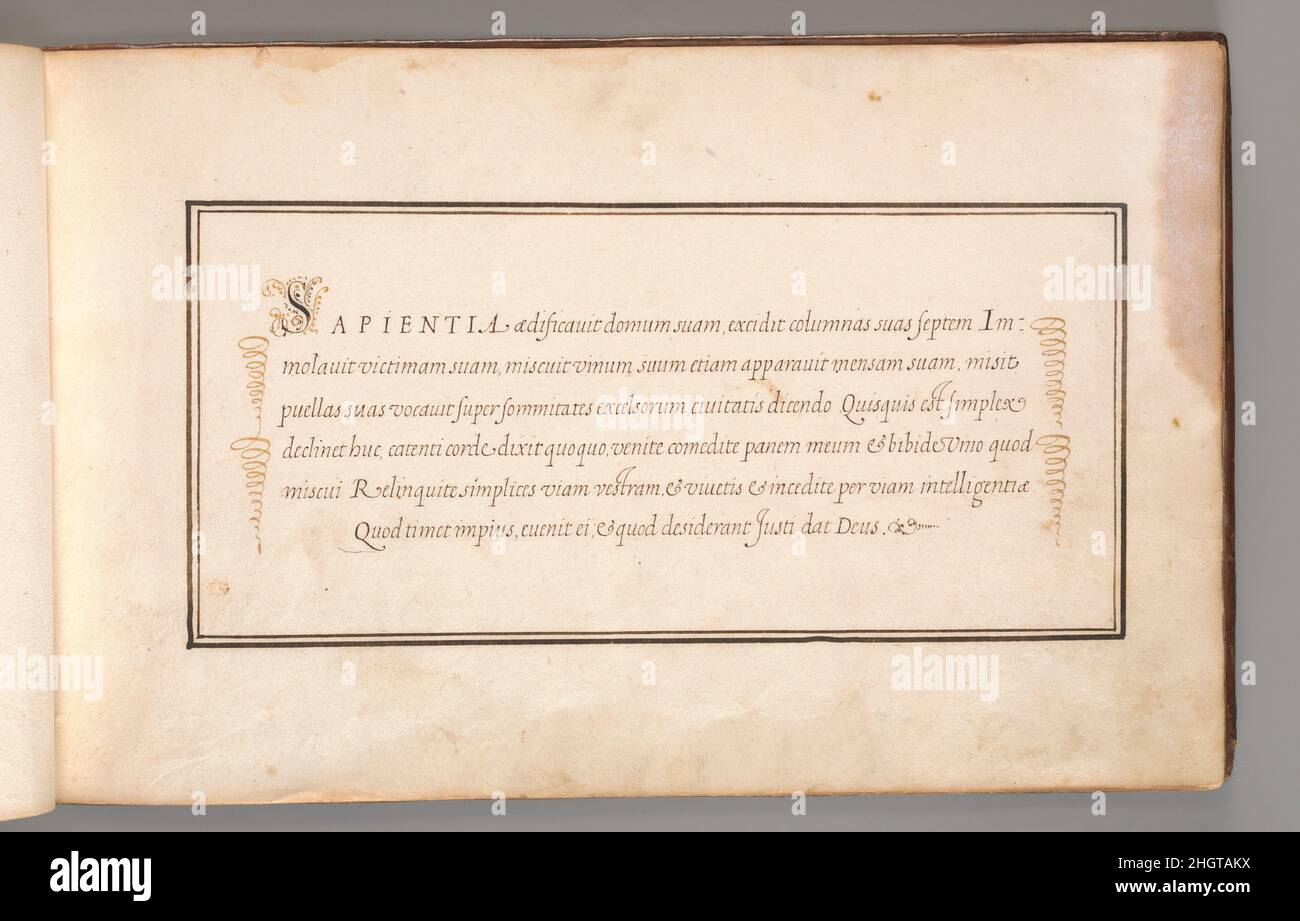 SAPIENTIA ædificavit domum suam, excidit columnas suas septem Im:
molavit victimam suam, miscuit vinum suum etiam apparavit mensam suam, misit
puellas suas vocavit super sommitates excelsorum civitatis dicendo Quisquis est simplex
declinet huc, catenti corde dixit quoquo, venite comedite panem meum & bibide vino quod
miscui Relinquite simplices viam vestram, & vivetis & incedite per viam intelligentiæ
Quod timet impius, evenit ei, & quod desiderant Justi dat Deus.
alamy
alamy
alamy
alamy
alamy
Image ID: 2HGTAKX
www.alamy.com